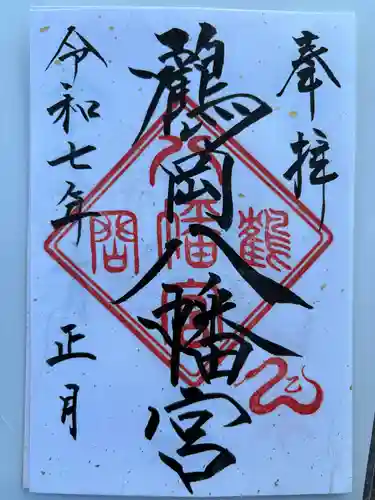 奉拝
鶴岡八幡宮
令和七年
正月
鶴
岡
八
幡
宮